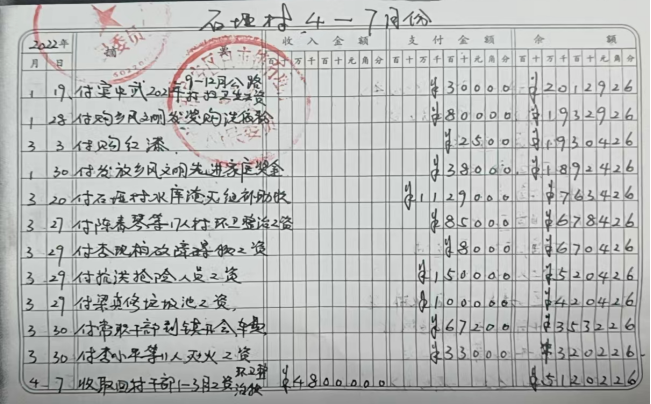 石堰村 4—7月份
2022年 摘 要 收入金额 支付金额 余额
月 日 百十万千百十元角分 百十万千百十元角分 百十万千百十元角分
1 19 付宋中武2021年9-12月公路 ¥30000 ¥2012926
1 28 付购乡风文明发奖购洗 ¥80000 ¥1932926
3 3 付购红漆 ¥2500 ¥1930426
1 30 付发放乡风文明先进家庭奖金 ¥38000 ¥1892426
3 20 付石堰村水库淹灭组补助款 ¥1129000 ¥763426
3 27 付陈春琴等17人村环卫整治工资 ¥85000 ¥678426
3 29 付李 工资 ¥8000 ¥670426
3 29 付抗洪抢险人员工资 ¥150000 ¥520426
3 29 付梁真修垃圾池工资 ¥100000 ¥420426
3 30 付常职干部到镇开会车费 ¥67200 ¥353226
3 30 付李小平等11人灭火工资 ¥33000 ¥320226
4 7 收取回村干部1-3月工资环卫整治款 ¥4800000 ¥5120226